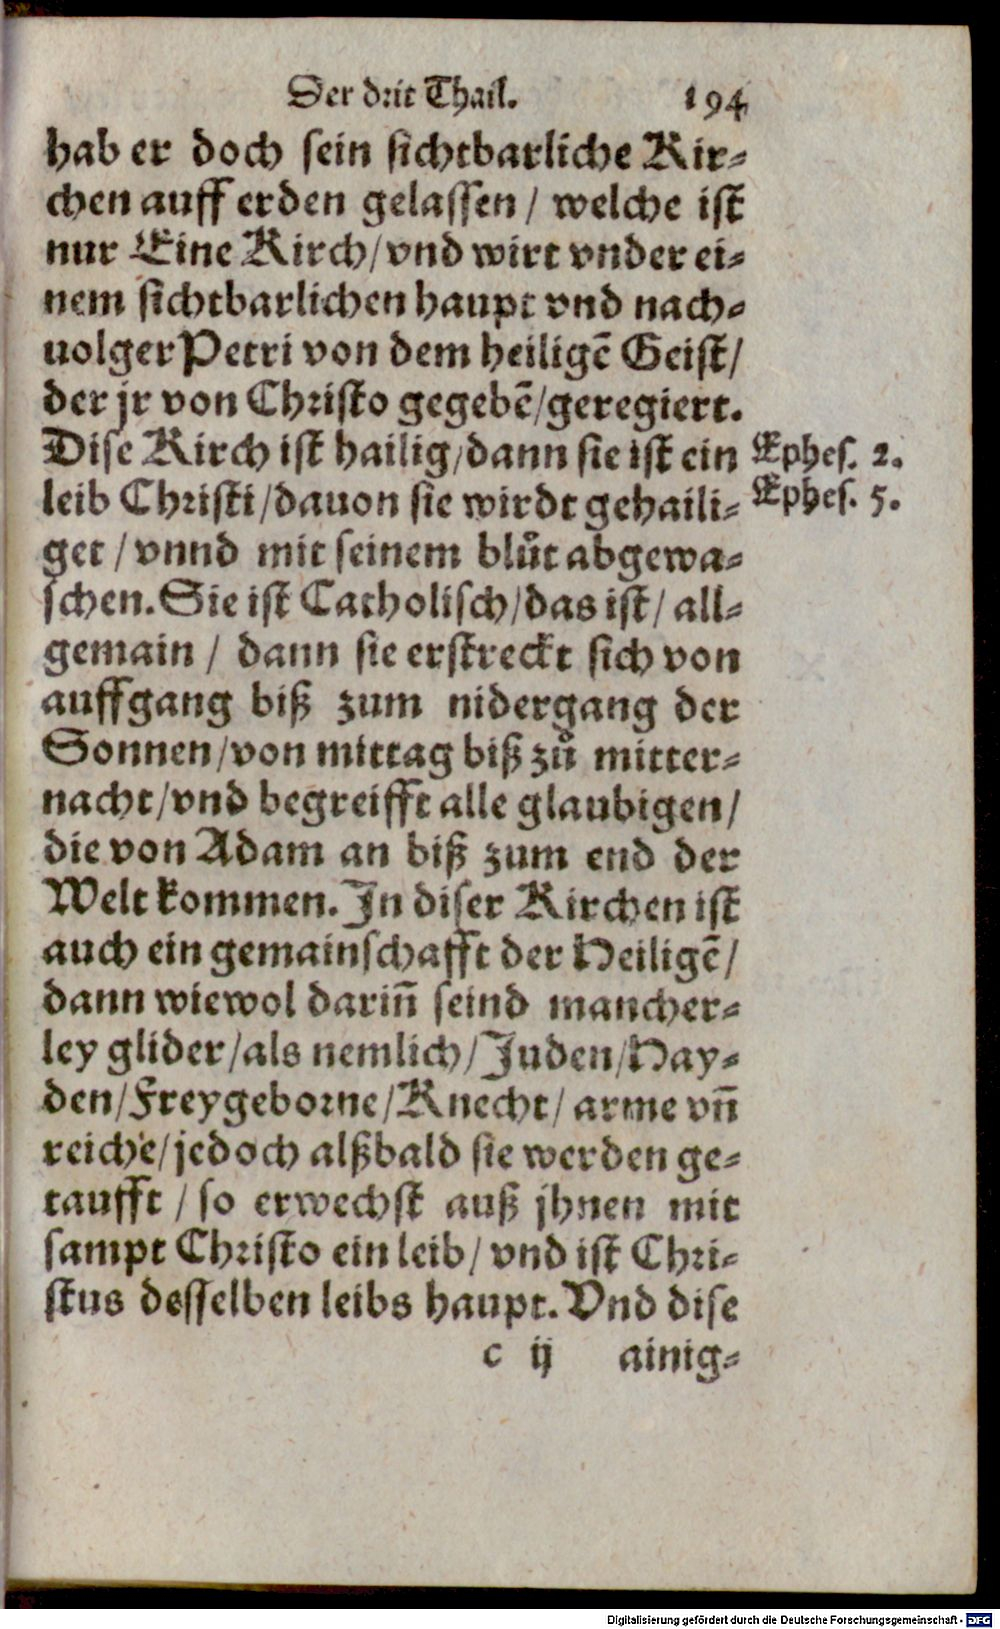 Der drit Thail. 194
hab er doch sein sichtbarliche Kir-
chen auff erden gelassen / welche ist
nur Eine Kirch/vnd wirt vnder ei-
nem sichtbarlichen haupt vnd nach-
uolger Petri von dem heiligẽ Geist/
der jr von Christo gegebẽ/geregiert.
Dise Kirch ist hailig/dann sie ist ein Ephes. 2.
leib Christi/dauon sie wirdt gehaili- Ephes. 5.
get / vnnd mit seinem blůt abgewa-
schen. Sie ist Catholisch/das ist/ all-
gemain / dann sie erstreckt sich von
auffgang biß zum nidergang der
Sonnen/von mittag biß zů mitter-
nacht/vnd begreifft alle glaubigen/
die von Adam an biß zum end der
Welt kommen. In diser Kirchen ist
auch ein gemainschafft der Heiligẽ/
dann wiewol dariñ seind mancher-
ley glider/als nemlich/Juden/Hay-
den/Freygeborne/Knecht/ arme vñ
reiche/jedoch alßbald sie werden ge-
taufft / so erwechst auß jhnen mit
sampt Christo ein leib/ vnd ist Chri-
stus desselben leibs haupt. Vnd dise
c ij ainig-
Digitalisierung gefördert durch die Deutsche Forschungsgemeinschaft - DFG